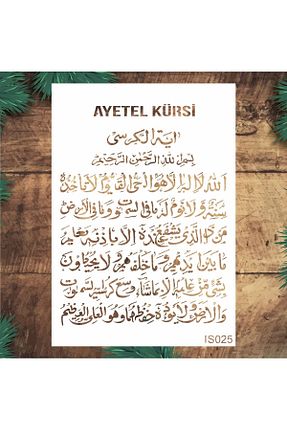 AYETEL KÜRSİ
اية الكرسي
بسم الله الرحمن الرحيم
الله لا اله الا هو الحي القيوم لا تاخذه
سنة ولا نوم له ما في السموت وما في الارض
من ذا الذي يشفع عنده الا باذنه يعلم
ما بين ايديهم وما خلفهم ولا يحيطون
بشئ من علمه الا بما شاء وسع كرسيه السموت
والارض ولا يؤده حفظهما وهو العلي العظيم
IS025